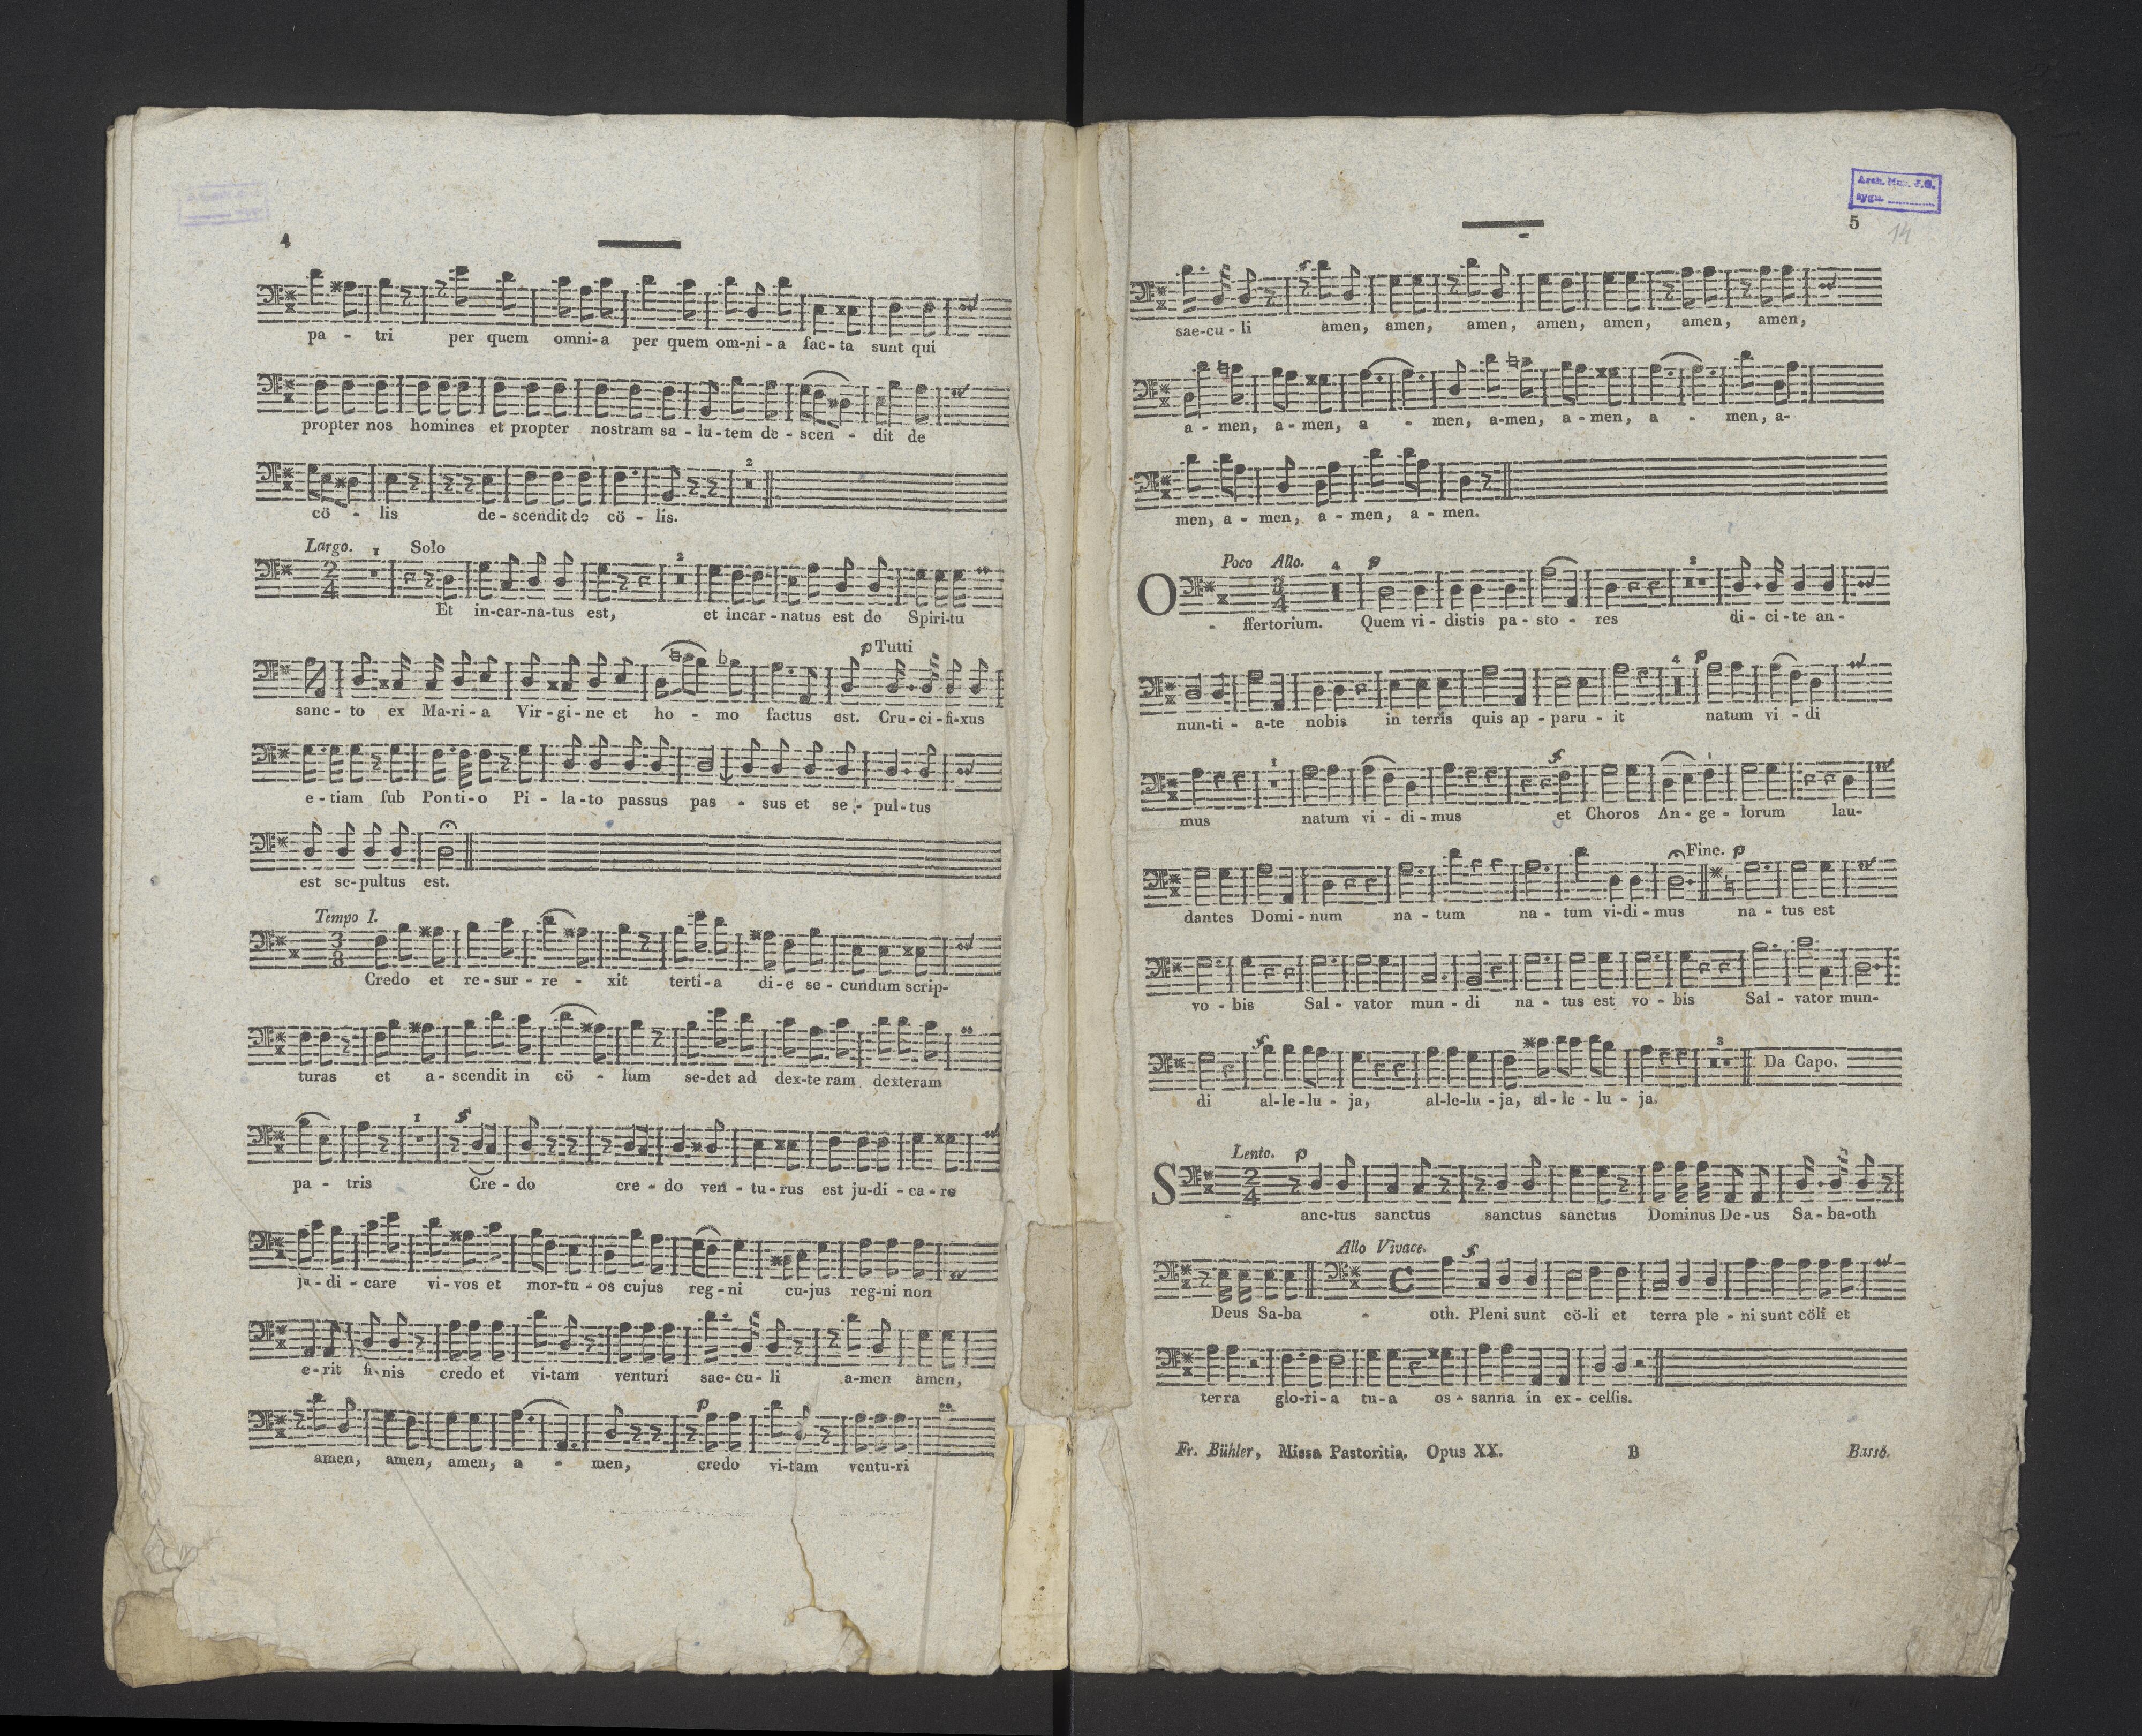 4
pa - tri per quem omni-a per quem om-ni-a fac-ta sunt qui
propter nos homines et propter nostram sa-lu-tem de-scen - dit de
cö - lis de-scendit de cö-lis.
Largo. 1 Solo 2
2/4
Et in-car-na-tus est, et incar-natus est de Spiri-tu
p Tutti
sanc-to ex Ma-ri-a Vir-gi-ne et ho - mo factus est. Cru-ci-fi-xus
e-tiam sub Ponti-o Pi-la-to passus pas - sus et se-pul-tus
est se-pultus est.
Tempo I.
3/8
Credo et re-sur-re - xit terti-a di-e se-cundum scrip-
turas et a-scendit in cö - lum se-det ad dex-te ram dexteram
pa - tris Cre-do cre-do ven-tu-rus est ju-di-ca-re
ju-di-care vi-vos et mor-tu-os cujus reg-ni cu-jus reg-ni non
e-rit fi-nis credo et vi-tam venturi sae-cu-li a-men amen,
p
amen, amen, amen, a - men, credo vi-tam ventu-ri
Arch. Muz. J.G.
sygn.
5
14
sae-cu-li amen, amen, amen, amen, amen, amen, amen,
a-men, a-men, a - men, a-men, a-men, a - men, a-
men, a-men, a-men, a-men.
Poco Allo. 4 p
3/4
Offertorium. Quem vi-distis pa-sto-res di-ci-te an-
4 p
nun-ti-a-te nobis in terris quis ap-paru-it natum vi-di
1
mus natum vi-di-mus et Choros An-ge-lorum lau-
Fine. p
dantes Domi-num na-tum na-tum vi-di-mus na-tus est
vo-bis Sal-vator mun-di na-tus est vo-bis Sal-vator mun-
3 Da Capo.
di al-le-lu-ja, al-le-lu-ja, al-le-lu-ja.
Lento. p
2/4
Sanc-tus sanctus sanctus sanctus Dominus De-us Sa-ba-oth
Allo Vivace.
Deus Sa-ba - oth. Pleni sunt cö-li et terra ple-ni sunt cöli et
terra glo-ri-a tu-a os-sanna in ex-celsis.
Fr. Bühler, Missa Pastoritia. Opus XX. B Basso.